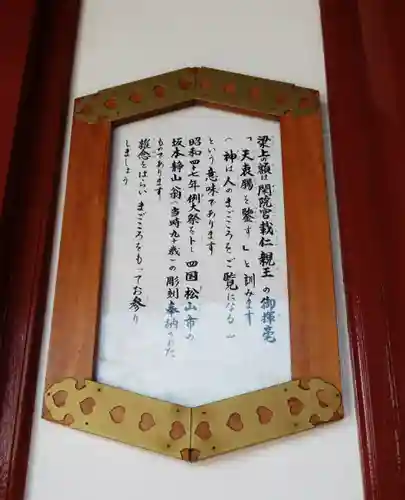 梁上の額は 閑院宮載仁親王 の御揮毫
「天衷賜を鑒す」と訓みます
(神は人のまごころをご覧になる)
という意味であります
昭和四十七年例大祭を卜し 四国松山市の
坂本静山翁(当時九十歳)の彫刻奉納された
ものであります
雑念をはらい まごころをもってお参り
しましょう